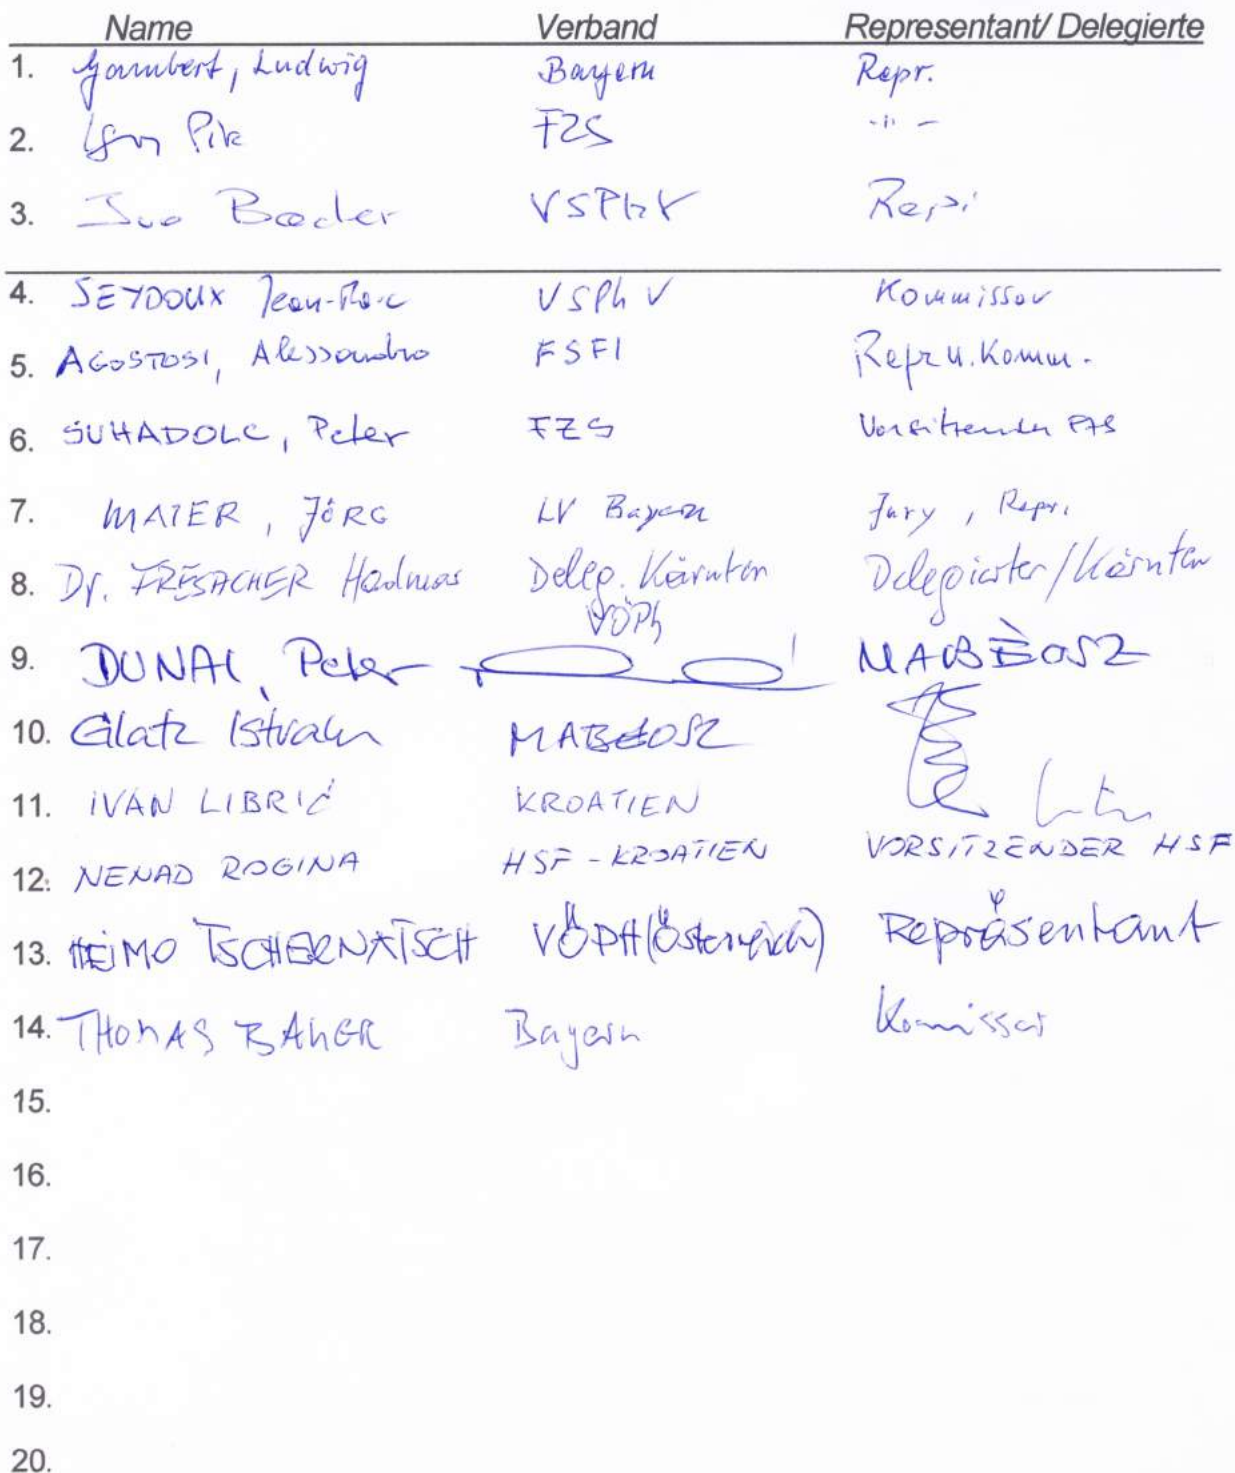 Name Verband Representant/ Delegierte
1. Gambert, Ludwig Bayern Repr.
2. Igor Pirc FZS -"-
3. Ivo Bader VSPhV Repr.
4. SEYDOUX Jean-Marc VSPhV Kommissar
5. AGOSTOSI, Alessandro FSFI Repr u. Komm.
6. SUHADOLC, Peter FZS Vorsitzender FZS
7. MAIER, JÖRG LV Bayern Jury, Repr.
8. Dr. FRESACHER Hadmar Deleg. Kärnten Delegierter/Kärnten
VÖPh
9. DUNAI, Peter MABÉOSZ
10. Glatz István MABÉOSZ
11. IVAN LIBRIĆ KROATIEN
12. NENAD ROGINA HSF - KROATIEN VORSITZENDER HSF
13. HEIMO TSCHERNATSCH VÖPH (Österreich) Repräsentant
14. THOMAS Bayern Komissar
15.
16.
17.
18.
19.
20.